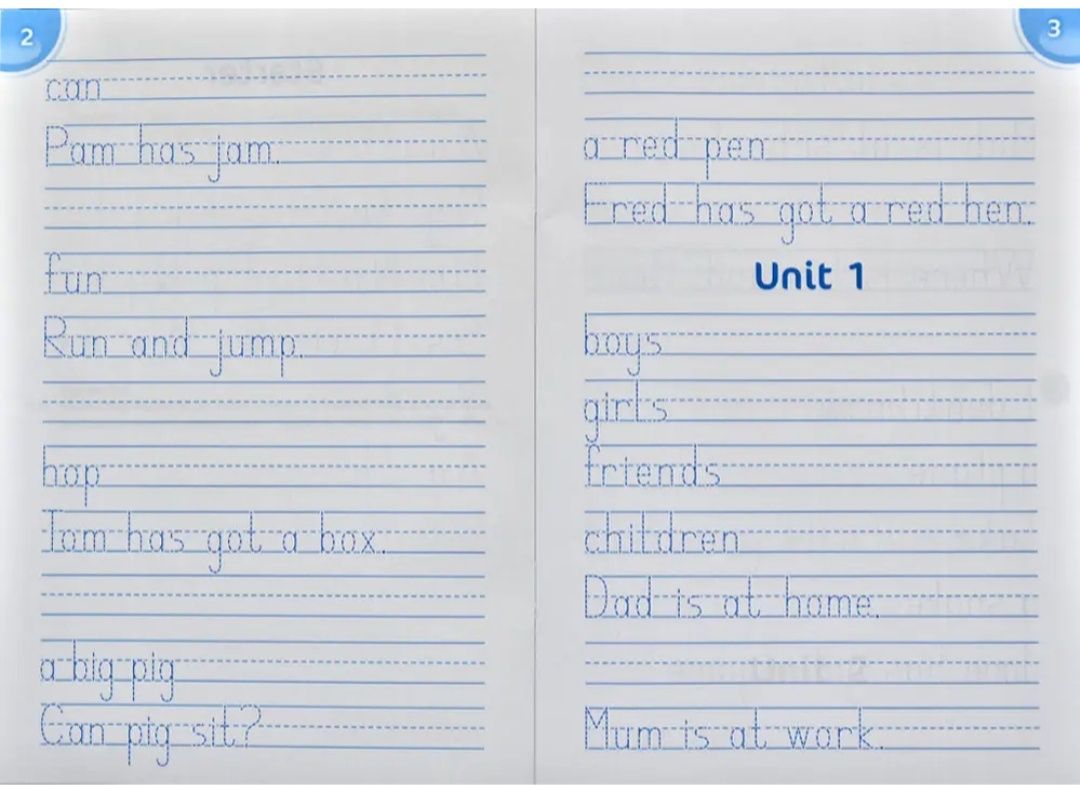 2
can
Pam has jam.
fun
Run and jump.
hop
Tom has got a box.
a big pig
Can pig sit?
3
a red pen
Fred has got a red hen.
Unit 1
boys
girls
friends
children
Dad is at home.
Mum is at work.